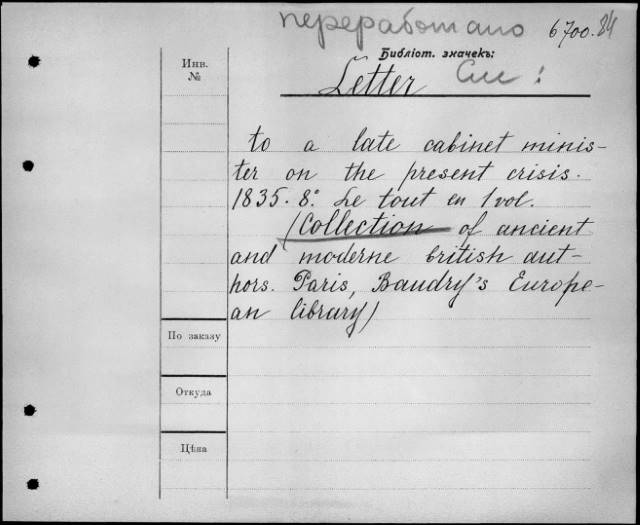 переработано 6700.84
Библіот. значекъ:
Letter См:
Инв.
№
to a late cabinet minis-
ter on the present crisis.
1835. 8º. Le tout en 1 vol.
(Collection of ancient
and moderne british aut-
hors. Paris, Baudry's Europe-
an library)
По заказу
Откуда
Цѣна